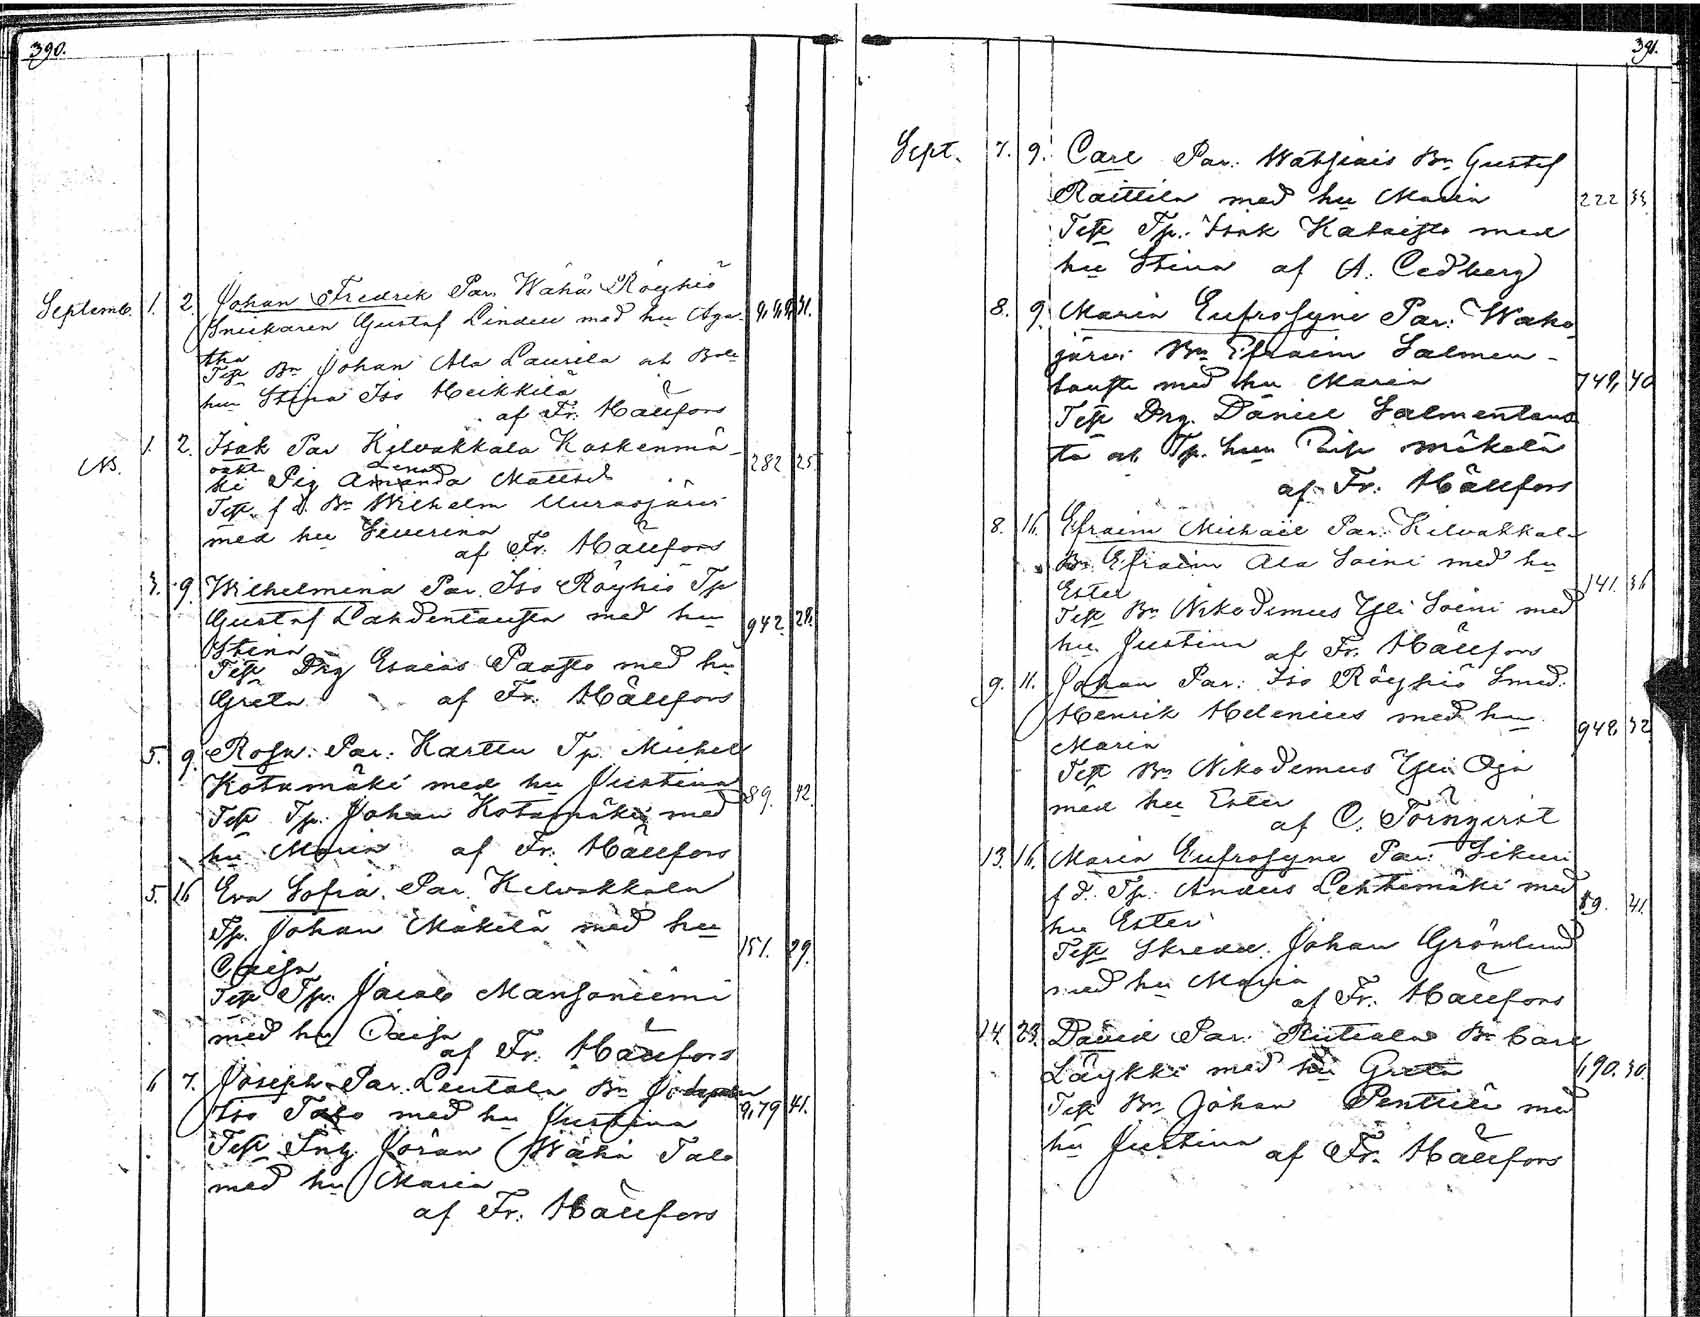 390.
Septemb. 1. 2. Johan Fredrik Par. Wähä Röyhiö
Snickaren Gustaf Linden med hu Aga-
tha
Test Bn Johan Ala Laurila
hu Stina Iso Heikkilä
af Fr. Hällfors
31.
1. 2. Isak Par Kilvakkala Koskenmä-
ki Pig Amanda Lena Mattsd 282 25.
Test f.d. Bn Wilhelm Uurasjärvi
med hu Severina
af Fr. Hällfors
3. 9. Wilhelmina Par. Iso Röyhiö Tp
Gustaf Lahdentausta med hu 942. 28.
Stina
Test Drg Esaias Paasto med hu
Greta af Fr. Hällfors
5. 9. Rosa. Par. Karttu Tp. Michel
Kotamäki med hu Justina 89. 42.
Test Tp. Johan Kotamäki med
hu Maria af Fr. Hällfors
5. 16 Eva Sofia. Par. Kilvakkala
Tp. Johan Mäkelä med hu 151. 29.
Caisa
Test Tp. Jacob Mansoniemi
med hu Caisa
af Fr. Hällfors
6 7. Joseph Par. Leutola Bn
Iso Talo med hu Justina 41.
Test Johan Wähä Talo
med hu Maria
af Fr. Hällfors
391.
Sept. 7. 9. Carl Par: Watsiais Bn Gustaf
Raittila med hu Maria 222 33
Test Tp. Isak Kataisto med
hu Stina af A. Cedberg
8. 9. Maria Eufrosyne Par: Waho
järvi Bn Efraim Salmen-
tausta med hu Maria 749, 40
Test Drg. Daniel Salmentaus
ta o. Tp. hu Caisa Mäkelä
af Fr. Hällfors
8. 16. Efraim Michael Par. Kilvakkala
Bn Efraim Ala Soini med hu
Ester 141. 36
Test Bn Nikodemus Yli Soini med
hu Justina af Fr. Hällfors
9. 11. Johan Par: Iso Röyhiö Smed.
Henrik Helenius med hu 948, 32
Maria
Test Bn Nikodemus Yli Oja
med hu Ester
af C. Törnqvist
13. 16. Maria Eufrosyne Par: Sikuri
f.d. Tp. Anders Lehtimäki med
hu Ester 89. 41.
Test Skredd. Johan Grönlund
med hu Maria
af Fr. Hällfors
14. 23. David Par: Riitiala Bn Carl
Läykki med hu Greta 690. 30.
Test Bn Johan Penttilä med
hu Justina af Fr. Hällfors